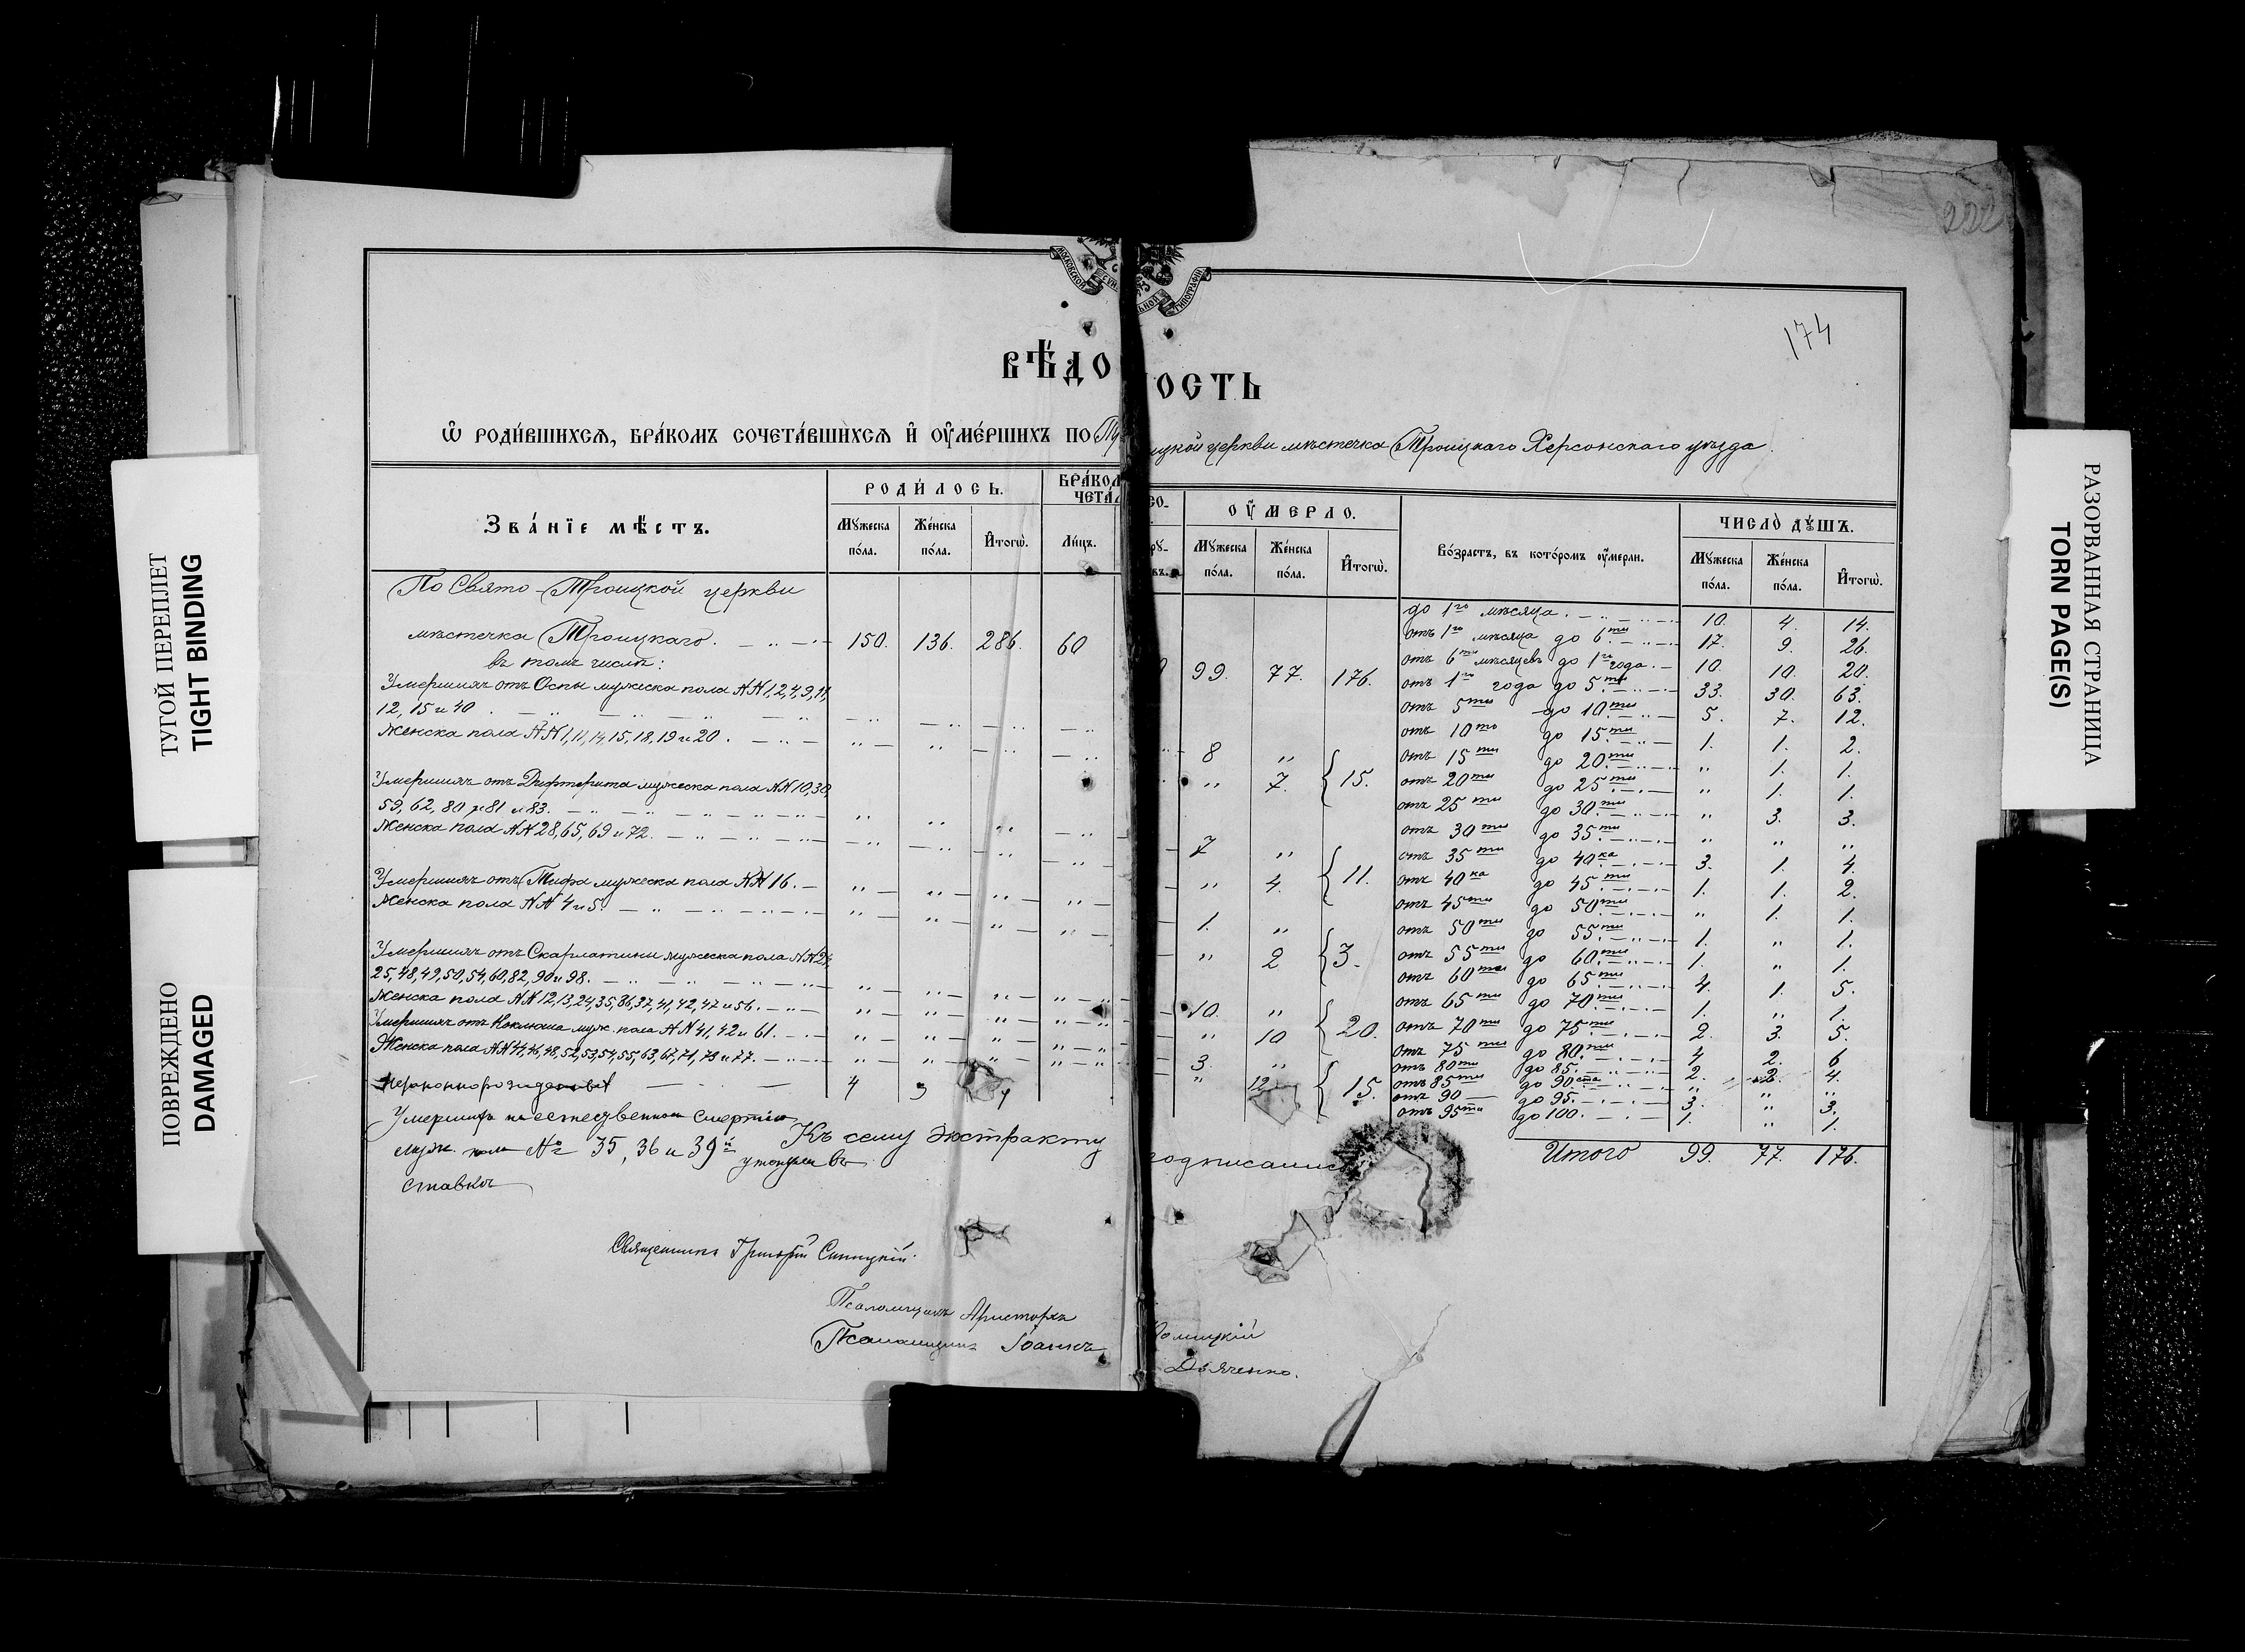 ТУГОЙ ПЕРЕПЛЕТ
TIGHT BINDING
ПОВРЕЖДЕНО
DAMAGED
РАЗОРВАННАЯ СТРАНИЦА
TORN PAGE(S)
174
МОСКОВСКОЙ СѴН ЛЬНОЙ ТИПОГРАФІИ
ВѢДО ОСТЬ
Ѡ РОДИ́ВШИХСѦ, БРА́КОМЪ СОЧЕТА́ВШИХСѦ И҆ ОУ҆МЕ́РШИХЪ ПО
цкой церкви мѣстечка Троицкаго Херсонскаго уѣзда.
Зва́нїе мѣ́стъ.
РОДИ́ЛОСЬ.
Мꙋжеска по́ла.
Же́нска по́ла.
И҆тогѡ̀.
БРА́КОМ СО-
ЧЕТА́Л
Ли́цъ.
ОУ҆МЕРЛО.
Мꙋжеска по́ла.
Же́нска по́ла.
И҆тогѡ̀.
Во́зрастъ, въ кото́ромъ оу҆мерли.
ЧИСЛО̀ ДꙊШЪ.
Мꙋжеска по́ла.
Же́нска по́ла.
И҆тогѡ̀.
По Свято-Троицкой церкви
мѣстечка Троицкаго. 150. 136. 286. 60 99. 77. 176.
въ томъ числѣ:
Умершихъ отъ Оспы мужеска пола №№ 1, 2, 4, 9, 11,
12, 15 и 40 8 „
Женска пола №№ 1, 11, 14, 15, 18, 19 и 20. „ 7. 15.
Умершихъ отъ Дифтерита мужеска пола №№ 10, 30,
59, 62, 80, 81 и 83. 7 „
Женска пола №№ 28, 65, 69 и 72. „ 4. 11.
Умершихъ отъ Тифа мужеска пола №№ 16. 1. „
Женска пола №№ 4 и 5. „ 2 3.
Умершихъ отъ Скарлатины мужеска пола №№ 24,
25, 48, 49, 50, 54, 60, 82, 90 и 98. 10. „
Женска пола №№ 12, 13, 24, 35, 36, 37, 41, 42, 47 и 56. „ 10 20.
Умершихъ отъ Коклюша муж. пола №№ 41, 42 и 61. 3. „
Женска пола №№ 44, 46, 48, 52, 53, 54, 55, 63, 67, 71, 73 и 77. „ 12 15.
4
Умершихъ неестественною смертію
муж. пола № 35, 36 и 39й утонули въ
ставкѣ
до 1го мѣсяца. 10. 4. 14.
отъ 1го мѣсяца до 6ти 17. 9. 26.
отъ 6ти мѣсяцевъ до 1го года. 10. 10. 20.
отъ 1го года до 5ти 33. 30. 63.
отъ 5ти до 10ти 5. 7. 12.
отъ 10ти до 15ти 1. 1. 2.
отъ 15ти до 20ти „ 1. 1.
отъ 20ти до 25ти „ 1. 1.
отъ 25ти до 30ти „ 3. 3.
отъ 30ти до 35ти „ „ „
отъ 35ти до 40ка 3. 1. 4.
отъ 40ка до 45ти 1. 1. 2.
отъ 45ти до 50ти „ 1. 1.
отъ 50ти до 55ти 1. „ 1.
отъ 55ти до 60ти 1. „ 1.
отъ 60ти до 65ти 4. 1. 5.
отъ 65ти до 70ти 1. „ 1.
отъ 70ти до 75ти 2. 3. 5.
отъ 75ти до 80ти 4 2. 6
отъ 80ти до 85. 2. 2. 4.
отъ 85ти до 90ста „ „ „
отъ 90 до 95. 3. „ 3.
отъ 95ти до 100. 1. „ 1.
Итого 99. 77. 176.
Къ сему экстракту одписались
Священникъ Григорій Синицкій.
Псаломщикъ Аристархъ
Псаломщикъ Іоаннъ Дьяченко.